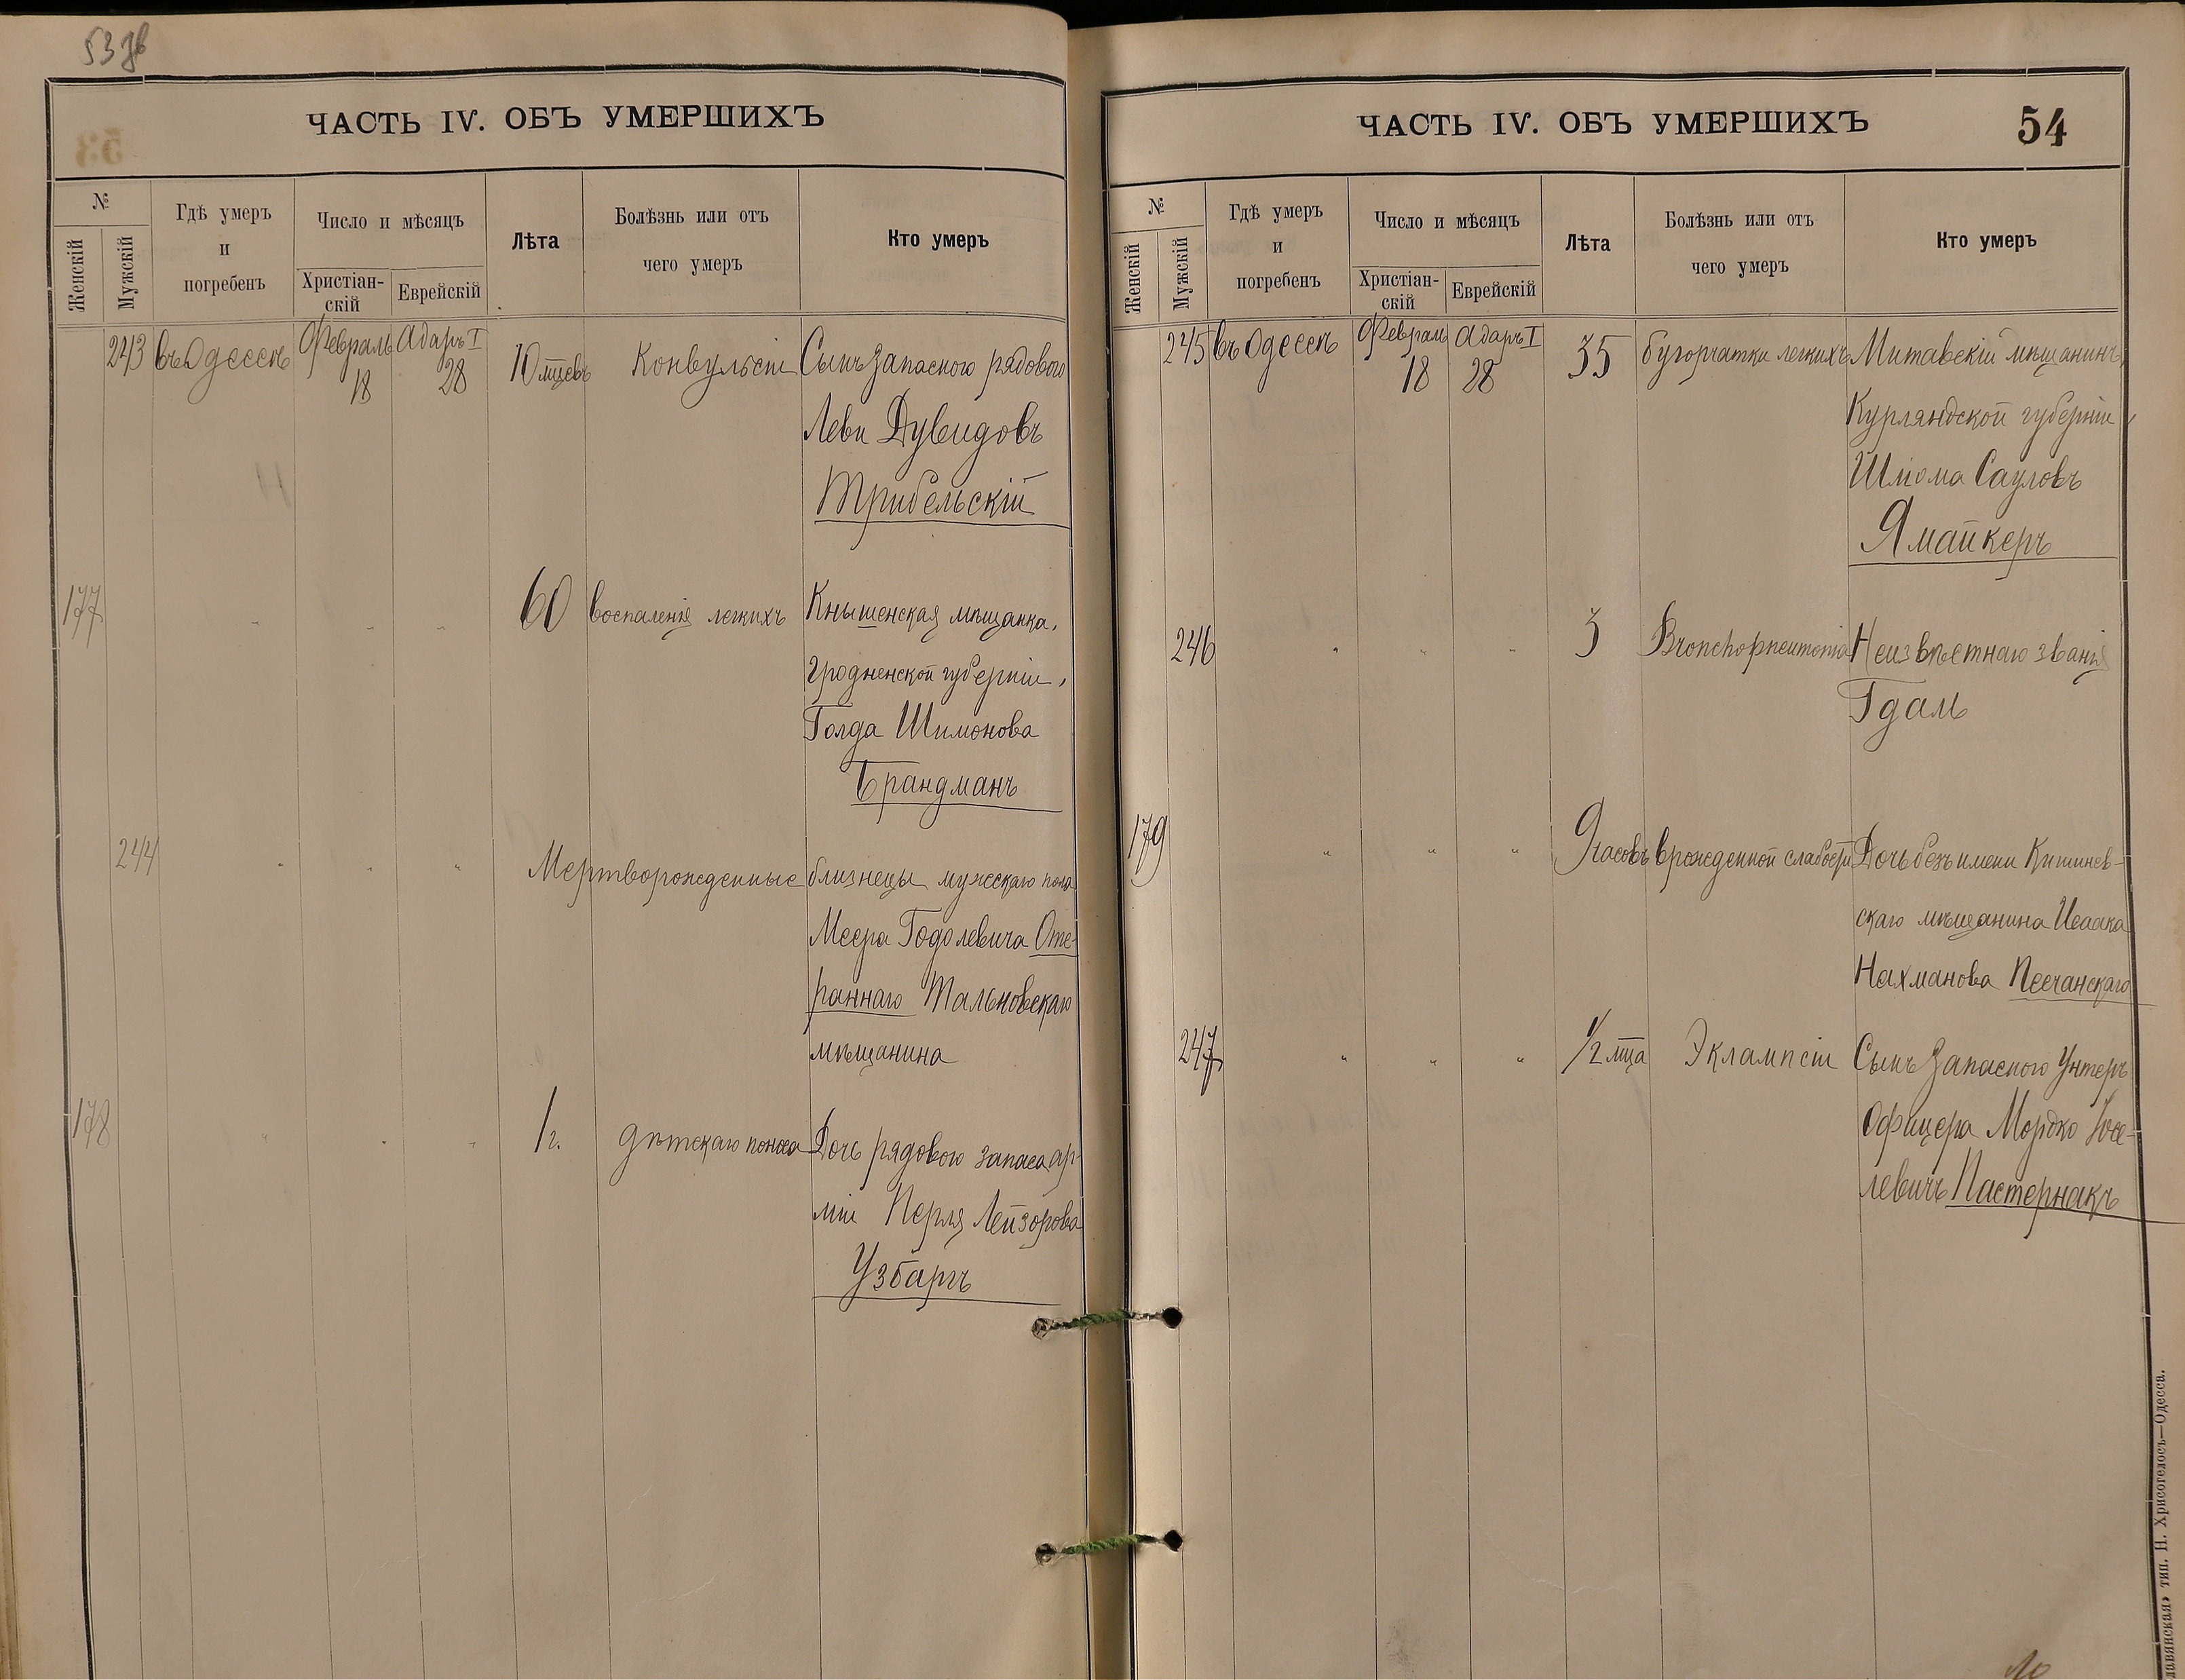 53 зв
ЧАСТЬ IV. ОБЪ УМЕРШИХЪ
№
Женскій
Мужскій
Гдѣ умеръ
и
погребенъ
Число и мѣсяцъ
Христіан-
скій
Еврейскій
Лѣта
Болѣзнь или отъ
чего умеръ
Кто умеръ
243 въ Одессѣ Февраль Адаръ I 10 мцевъ Конвульсіи Сынъ запасного рядового
18 28
Леви Дувидовъ
Трибельскій
177 " " " 60 воспаленія легкихъ Кнышенская мѣщанка,
Гродненской губерніи,
Голда Шимонова
Брандманъ
244 " " " Мертворожденные близнецы мужескаго пола
Меера Годолевича Оте-
раннаго Тальновскаго
мѣщанина
178 " " " 1 г. дѣтскаго поноса Дочь рядового запаса ар-
міи Перля Лейзорова
Узбаргъ
ЧАСТЬ IV. ОБЪ УМЕРШИХЪ
54
№
Женскій
Мужскій
Гдѣ умеръ
и
погребенъ
Число и мѣсяцъ
Христіан-
скій
Еврейскій
Лѣта
Болѣзнь или отъ
чего умеръ
Кто умеръ
245 въ Одессѣ Февраль Адаръ I 35 бугорчатки легкихъ Митавскій мѣщанинъ,
18 28
Курляндской губерніи,
Шлома Сауловъ
Ямайкеръ
246 " " " 3 Bronchopneumonia Неизвѣстнаго званія
Гдаль
179 " " " 9 часовъ врожденной слабости Дочь безъ имени Кишинев-
скаго мѣщанина Исаака
Нахманова Песчанскаго
247 " " " 1/2 мца Эклампсіи Сынъ Запасного Унтеръ
Офицера Мордко Іосе-
левичъ Пастернакъ
тип. Н. Хрисогелосъ—Одесса.